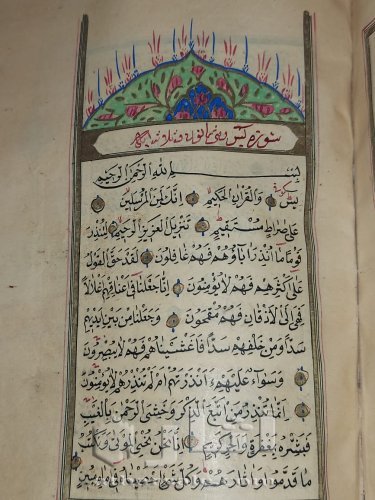 سورة يس وهي ثمانون وثلاث آية
بسم الله الرحمن الرحيم
يس وَالْقُرْاٰنِ الْحَكِيمِ اِنَّكَ لَمِنَ الْمُرْسَلِينَ
عَلٰى صِرَاطٍ مُسْتَقِيمٍ تَنْزِيلَ الْعَزِيزِ الرَّحِيمِ لِتُنْذِرَ
قَوْمًا مَا اُنْذِرَ اٰبَاؤُهُمْ فَهُمْ غَافِلُونَ لَقَدْ حَقَّ الْقَوْلُ
عَلٰى اَكْثَرِهِمْ فَهُمْ لَا يُؤْمِنُونَ اِنَّا جَعَلْنَا فِى اَعْنَاقِهِمْ اَغْلَالًا
فَهِىَ اِلَى الْاَذْقَانِ فَهُمْ مُقْمَحُونَ وَجَعَلْنَا مِنْ بَيْنِ اَيْدِيهِمْ
سَدًّا وَمِنْ خَلْفِهِمْ سَدًّا فَاَغْشَيْنَاهُمْ فَهُمْ لَا يُبْصِرُونَ
وَسَوَاءٌ عَلَيْهِمْ ءَاَنْذَرْتَهُمْ اَمْ لَمْ تُنْذِرْهُمْ لَا يُؤْمِنُونَ
اِنَّمَا تُنْذِرُ مَنِ اتَّبَعَ الذِّكْرَ وَخَشِىَ الرَّحْمٰنَ بِالْغَيْبِ
فَبَشِّرْهُ بِمَغْفِرَةٍ وَاَجْرٍ كَرِيمٍ اِنَّا نَحْنُ نُحْيِى الْمَوْتٰى وَنَكْتُبُ
مَا قَدَّمُوا وَاٰثَارَهُمْ وَكُلَّ شَىْءٍ اَحْصَيْنَاهُ فِى اِمَامٍ مُبِينٍ